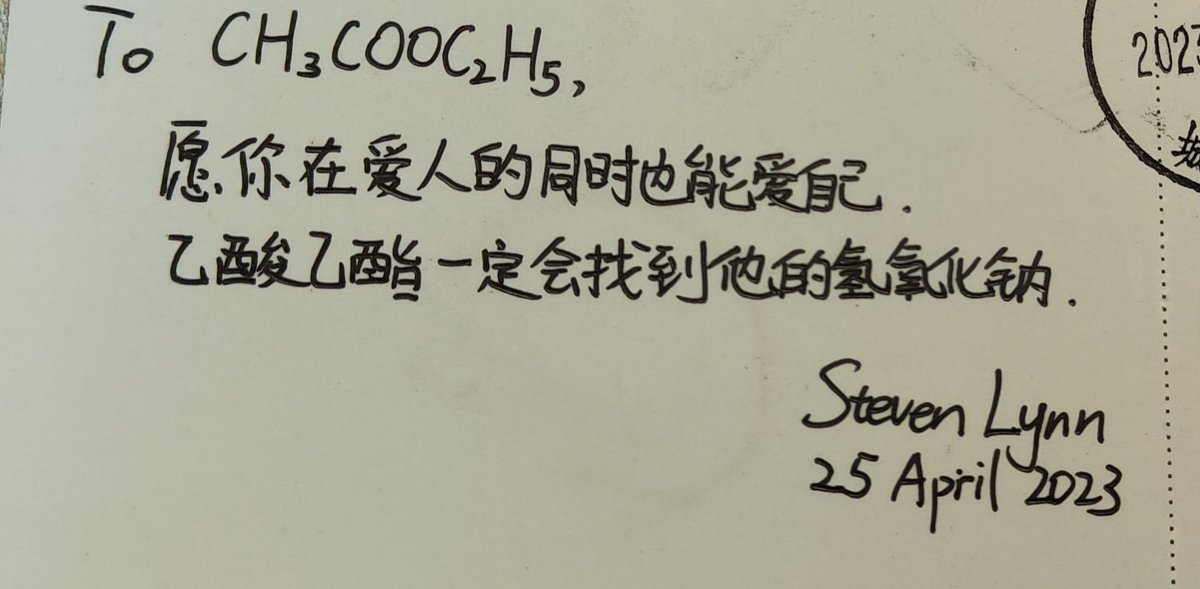 To CH₃COOC₂H₅,
愿你在爱人的同时也能爱自己.
乙酸乙酯一定会找到他的氢氧化钠.
Steven Lynn
25 April 2023
2023